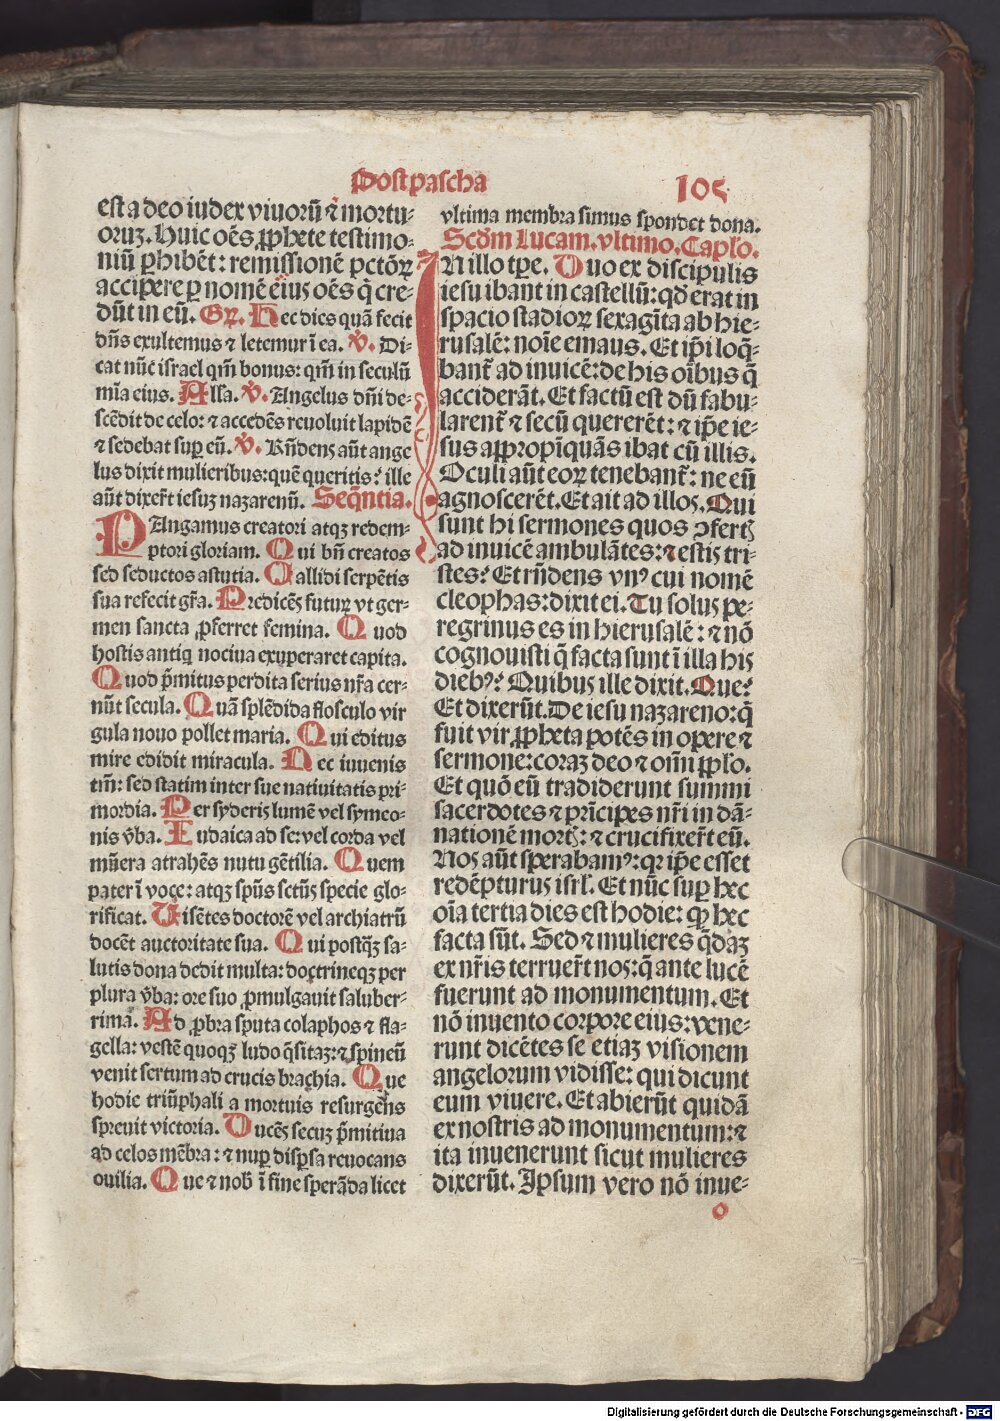 Postpascha
105
est a deo iudex viuorū ⁊ mortu⸗
oruꝫ. Huic oēs ꝓphete testimo⸗
niū ꝑhibēt: remissionē pctōꝝ
accipere ꝑ nomē eius oēs q̄ cre⸗
dūt in eū. Gꝛ. Hec dies quā fecit
dn̄s exultemus ⁊ letemur ī ea. ℣. Di⸗
cat nūc israel qm̄ bonus: qm̄ in seculū
mīa eius. Alla. ℣. Angelus dn̄i de⸗
scēdit de celo: ⁊ accedēs reuoluit lapidē
⁊ sedebat suꝑ eū. ℣. Rn̄dens aūt ange
lus dixit mulieribus: quē queritis? ille
aūt dixer̄t iesuꝫ nazarenū. Seq̄ntia.
PAngamus creatori atqꝫ redem⸗
ptori gloriam. Qui bn̄ creatos
sed seductos astutia. Callidi serpētis
sua refecit gr̄a. Predicēs futuꝝ vt ger⸗
men sancta ꝓferret femina. Quod
hostis antiq nociua exuperaret capita.
Quod p̄mitus perdita serius nr̄a cer⸗
nūt secula. Quā splēdida flosculo vir
gula nouo pollet maria. Qui editus
mire edidit miracula. Nec iuuenis
tm̄: sed statim inter sue natiuitatis pri⸗
mordia. Per syderis lumē vel symeo⸗
nis v̄ba. Iudaica ad se: vel corda vel
mūera atrahēs nutu gētilia. Quem
pater ī voce: atqꝫ spūs sctūs specie glo⸗
rificat. Uisētes doctorē vel archiatrū
docēt auctoritate sua. Qui postq̄ꝫ sa⸗
lutis dona dedit multa: doctrineqꝫ per
plura v̄ba: ore suo ꝓmulgauit saluber⸗
rima. Ad ꝓbra sputa colaphos ⁊ fla⸗
gella: vestē quoqꝫ ludo q̄sitaꝫ: ⁊ spineū
venit sertum ad crucis brachia. Que
hodie triūphali a mortuis resurgēns
spreuit victoria. Ducēs secuꝫ p̄mitiua
ad celos mēbra: ⁊ nuꝑ disꝑsa reuocans
ouilia. Que ⁊ nob̄ ī fine sperāda licet
vltima membra simus spondet dona.
Scd̄m Lucam. vltimo. Caplo.
IN illo tꝑe. Duo ex discipulis
iesu ibant in castellū: qd̄ erat in
spacio stadioꝝ sexagīta ab hie⸗
rusalē: noīe emaus. Et ip̄i loq̄⸗
bant᷑ ad inuicē: de his oībus q̄
acciderāt. Et factū est dū fabu⸗
larent᷑ ⁊ secū quererēt: ⁊ ip̄e ie⸗
sus appropīquās ibat cū illis.
Oculi aūt eoꝝ tenebant᷑: ne eū
agnoscerēt. Et ait ad illos. Qui
sunt hi sermones quos ꝯfertꝭ
ad inuicē ambulātes: ⁊ estis tri⸗
stes? Et rn̄dens vnꝰ cui nomē
cleophas: dixit ei. Tu solus pe⸗
regrinus es in hierusalē: ⁊ nō
cognouisti q̄ facta sunt ī illa his
diebꝰ? Quibus ille dixit. Que?
Et dixerūt. De iesu nazareno: q̄
fuit vir ꝓpheta potēs in opere ⁊
sermone: coraꝫ deo ⁊ oīn pplo.
Et quō eū tradiderunt summi
sacerdotes ⁊ prīcipes nr̄i in dā⸗
nationē mortꝭ: ⁊ crucifixer̄t eū.
Nos aūt sperabamꝰ: qꝛ ip̄e esset
redēpturus isrl. Et nūc suꝑ hec
oīa tertia dies est hodie: ꝙ hec
facta sūt. Sed ⁊ mulieres q̄daꝫ
ex nr̄is terruer̄t nos: q̄ ante lucē
fuerunt ad monumentum. Et
nō inuento corpore eius: vene⸗
runt dicētes se etiaꝫ visionem
angelorum vidisse: qui dicunt
eum viuere. Et abierūt quidā
ex nostris ad monumentum: ⁊
ita inuenerunt sicut mulieres
dixerūt. Ipsum vero nō inue⸗
o
Digitalisierung gefördert durch die Deutsche Forschungsgemeinschaft - DFG